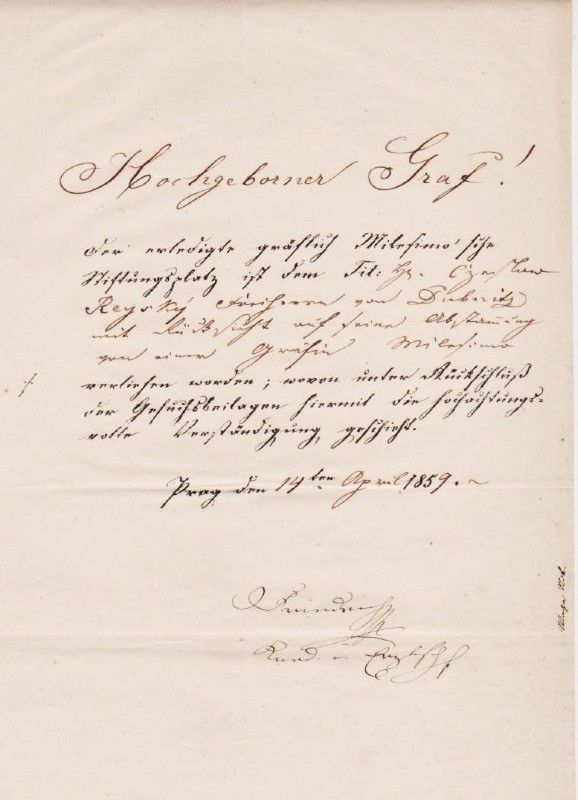 Hochgeborner Graf!
Der erledigte gräflich Milesimo'sche
Stiftungsplatz ist dem Tit: Hr. Czeslaw
Reysky Freiherrn von Dubnitz
mit Rücksicht auf seine Abstammung
von einer Gräfin Milesimo
verliehen worden; wovon unter Rückschluß
der Gesuchsbeilagen hiermit die hochachtungs-
volle Verständigung geschieht.
Prag den 14ten April 1859.
Friedrich
Kard. u. Erzbischof